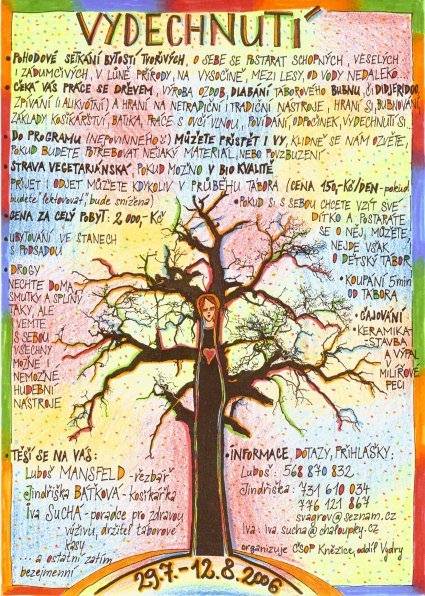 VYDECHNUTÍ
• POHODOVÉ SETKÁNÍ BYTOSTÍ TVOŘIVÝCH, O SEBE SE POSTARAT SCHOPNÝCH, VESELÝCH
I ZÁDUMČIVÝCH, V LŮNĚ PŘÍRODY, NA VYSOČINĚ, MEZI LESY, OD VODY NEDALEKO...
ČEKÁ VÁS PRÁCE SE DŘEVEM, VÝROBA OZDOB, DLABÁNÍ TÁBOROVÉHO BUBNU, ČI DIDJERIDOO,
ZPÍVÁNÍ (I ALIKVOTNÍ) A HRANÍ NA NETRADIČNÍ I TRADIČNÍ NÁSTROJE, HRANÍ SI, BUBNOVÁNÍ,
ZÁKLADY KOŠÍKÁŘSTVÍ, BATIKA, PRÁCE S OVČÍ VLNOU, POVÍDÁNÍ, ODPOČINEK, VYDECHNUTÍ SI...
• DO PROGRAMU (NEPOVINNÉHO) MŮŽETE PŘISPĚT I VY, KLIDNĚ SE NÁM OZVĚTE,
POKUD BUDETE POTŘEBOVAT NĚJAKÝ MATERIÁL, NEBO POVZBUZENÍ
• STRAVA VEGETARIÁNSKÁ, POKUD MOŽNO V BIO KVALITĚ
PŘIJET I ODJET MŮŽETE KDYKOLIV V PRŮBĚHU TÁBORA (CENA 150,-Kč/DEN - pokud
budete lektorovat, bude snížena)
• POKUD SI S SEBOU CHCETE VZÍT SVÉ
DÍTKO A POSTARÁTE
SE O NĚJ, MŮŽETE,
NEJDE VŠAK
O DĚTSKÝ TÁBOR
CENA ZA CELÝ POBYT: 2 000,-Kč
• UBYTOVÁNÍ VE STANECH
S PODSADOU
• KOUPÁNÍ 5min
OD TÁBORA
• DROGY
NECHTE DOMA,
SMUTKY A SPLÍNY
TAKY, ALE
VEMTE
S SEBOU
VŠECHNY
MOŽNÉ I
NEMOŽNÉ
HUDEBNÍ
NÁSTROJE
• ČAJOVÁNÍ
• KERAMIKA -
STAVBA
A VÝPAL
V
MILÍŘOVÉ
PECI
• TĚŠÍ SE NA VÁS:
Luboš MANSFELD - řezbář
Jindřiška BAŤKOVÁ - košíkářka
Iva SUCHÁ - poradce pro zdravou
výživu, držitel táborové
kasy
... a ostatní zatím
bezejmenní
• INFORMACE, DOTAZY, PŘIHLÁŠKY:
Luboš: 568 870 832
Jindřiška: 731 610 034
776 121 867
svagrov@seznam.cz
Iva: iva.sucha@chaloupky.cz
organizuje ČSOP Kněžice, oddíl Vydry
29.7. - 12.8. 2006